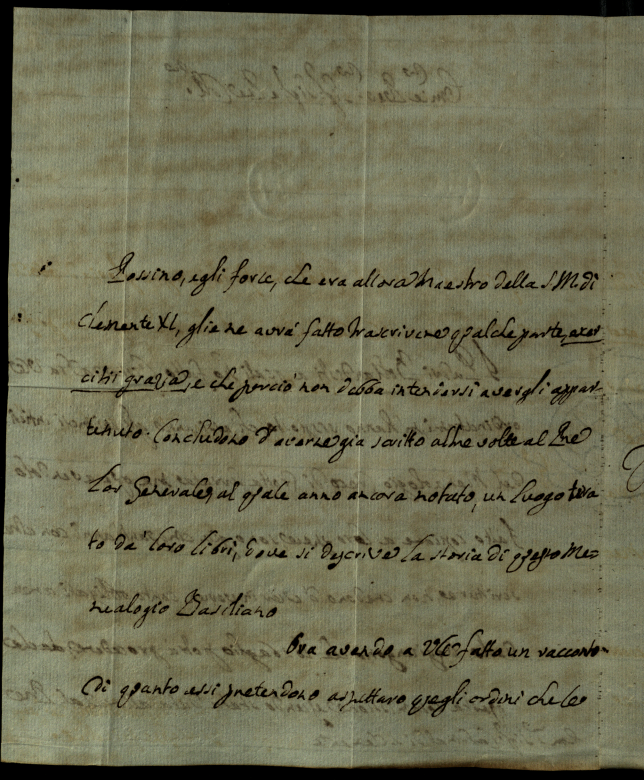 Possino, egli forse, che era allora Maestro della S M di
Clemente XI, gli ne avrà fatto trascrivere qualche parte, exer
citii gratia, e che perciò non debba intendersi avergli appar-
tenuto. Concludono d'averne già scritto altre volte al Pre
Lor Generale, al quale anno ancora notato, un Luogo tira
to da' loro libri, dove si descrive la storia di questo Me=
nealogio Basiliano
Ora avendo a fatto un racconto
di quanto essi pretendono aspettaro quegli ordini che le